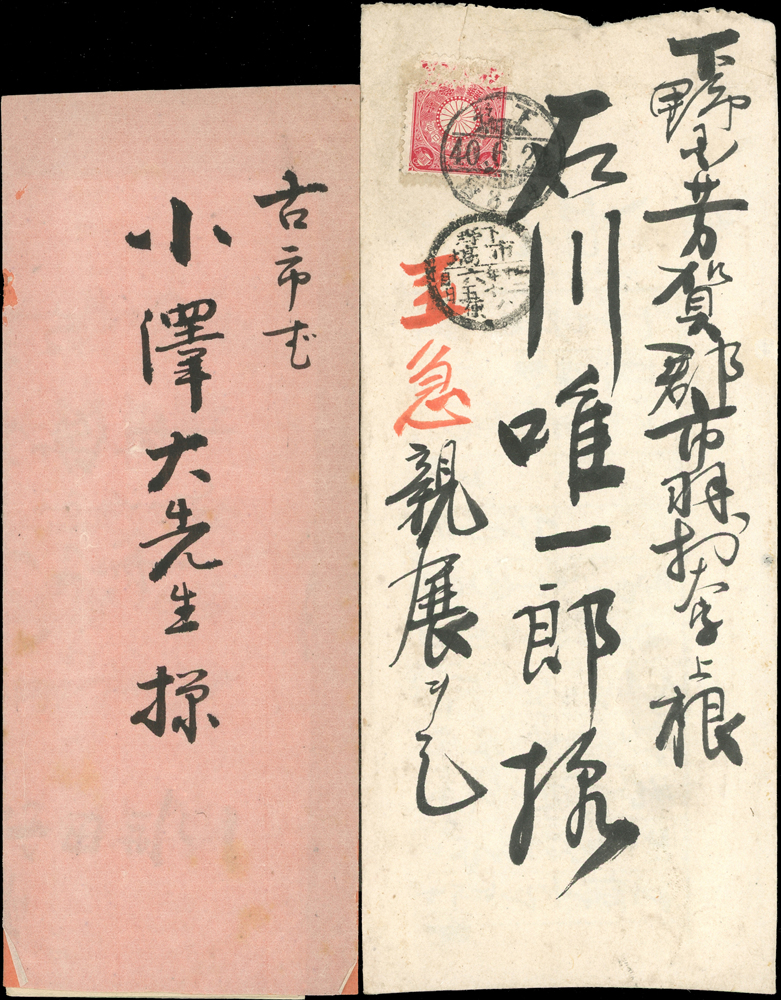 下野国芳賀郡市羽村大字上根
石川唯一郎様
至急
親展
40.6.2
下市
古市
小澤大先生様